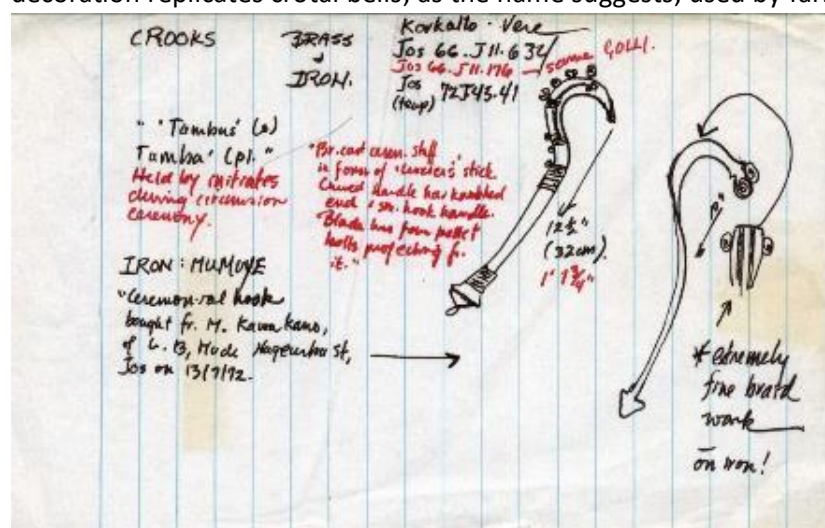 decoration replicates crotal bells, as the name suggests, used by
CROOKS
BRASS
+
IRON.
Korkallo · Vere
Jos 66.J11.632/
Jos 66.J11.176 — same GOLLI.
Jos 72J43.41
(temp)
" 'Tambus' (s)
Tamba' (pl."
Held by initiates
during circumcision
ceremony.
"Br. cast cerem. staff
in form of 'cinelers' stick
Curved handle has knobbed
end + sm. hook handle.
Blade has four pellet
bells projecting fr.
it."
12½"
(32cm).
1' 1¾"
IRON: MUMUYE
"Ceremonial hook
bought fr. M. Kawa Kano,
of L. 13, Mude St,
Jos on 13/7/72.
* extremely
fine braid
work
on iron!